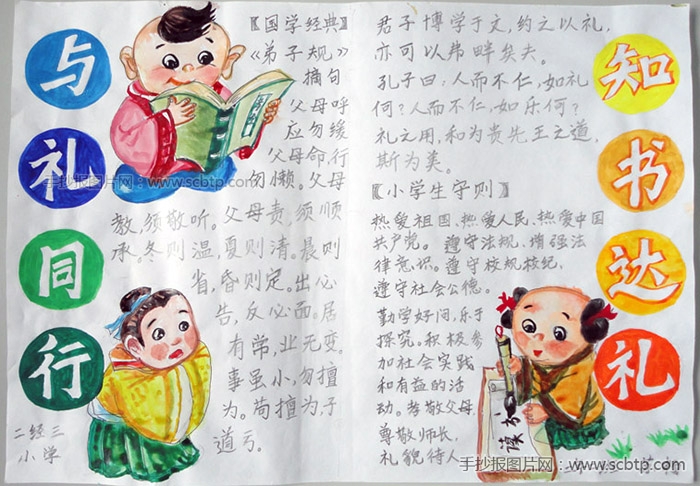 与
礼
同
行
【国学经典】
《弟子规》
摘句
父母呼
应勿缓
父母命,行
勿懒。父母
教,须敬听。父母责,须顺
承。冬则温,夏则清。晨则
省,昏则定。出必
告,反必面。居
有常,业无变。
事虽小,勿擅
为。苟擅为,子
道亏。
二经三
小学
君子博学于文,约之以礼,
亦可以弗畔矣夫。
孔子曰:人而不仁,如礼
何?人而不仁,如乐何?
礼之用,和为贵先王之道,
斯为美。
【小学生守则】
热爱祖国、热爱人民、热爱中国
共产党。遵守法规,增强法
律意识。遵守校规校纪,
遵守社会公德。
勤学好问,乐于
探究。积极参
加社会实践
和有益的活
动。孝敬父母,
尊敬师长,
礼貌待人
读书
知
书
达
礼
手抄报图片网:www.scbtp.com
手抄报图片网:www.scbtp.com